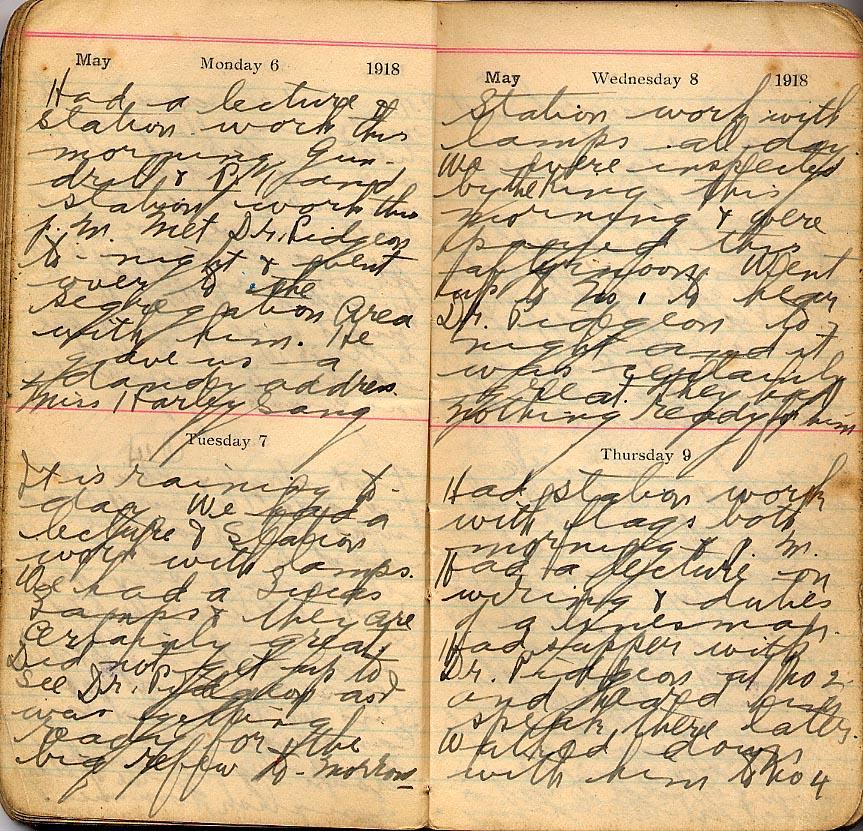 May Monday 6 1918
Had a lecture &
station work this
morning. Gun
drill & P.T. and
station work this
p.m. Met Dr. Pidgeon
to-night & went
over to the
segregation Area
with him. He
gave us a
dandy address.
Miss Harley Sang
Tuesday 7
It is raining to-
day. We had a
lecture & Station
work with lamps.
We had a
Lamps & they are
certainly great
Did not get up to
see Dr. Pidgeon as I
was getting
ready for the
big review to-morrow
May Wednesday 8 1918
Station work with
lamps all day
We were inspected
by the King this
morning & were
this
afternoon. Went
up to No 1 to hear
Dr. Pidgeon to-
night and it
was certainly
great. They had
nothing ready for him
Thursday 9
Had station work
with flags both
morning & p.m.
Had a lecture on
wiring & duties
of a linesman.
Had supper with
Dr. Pidgeon at No 2
and heard him
speak there later.
Walked down
with him to No 4